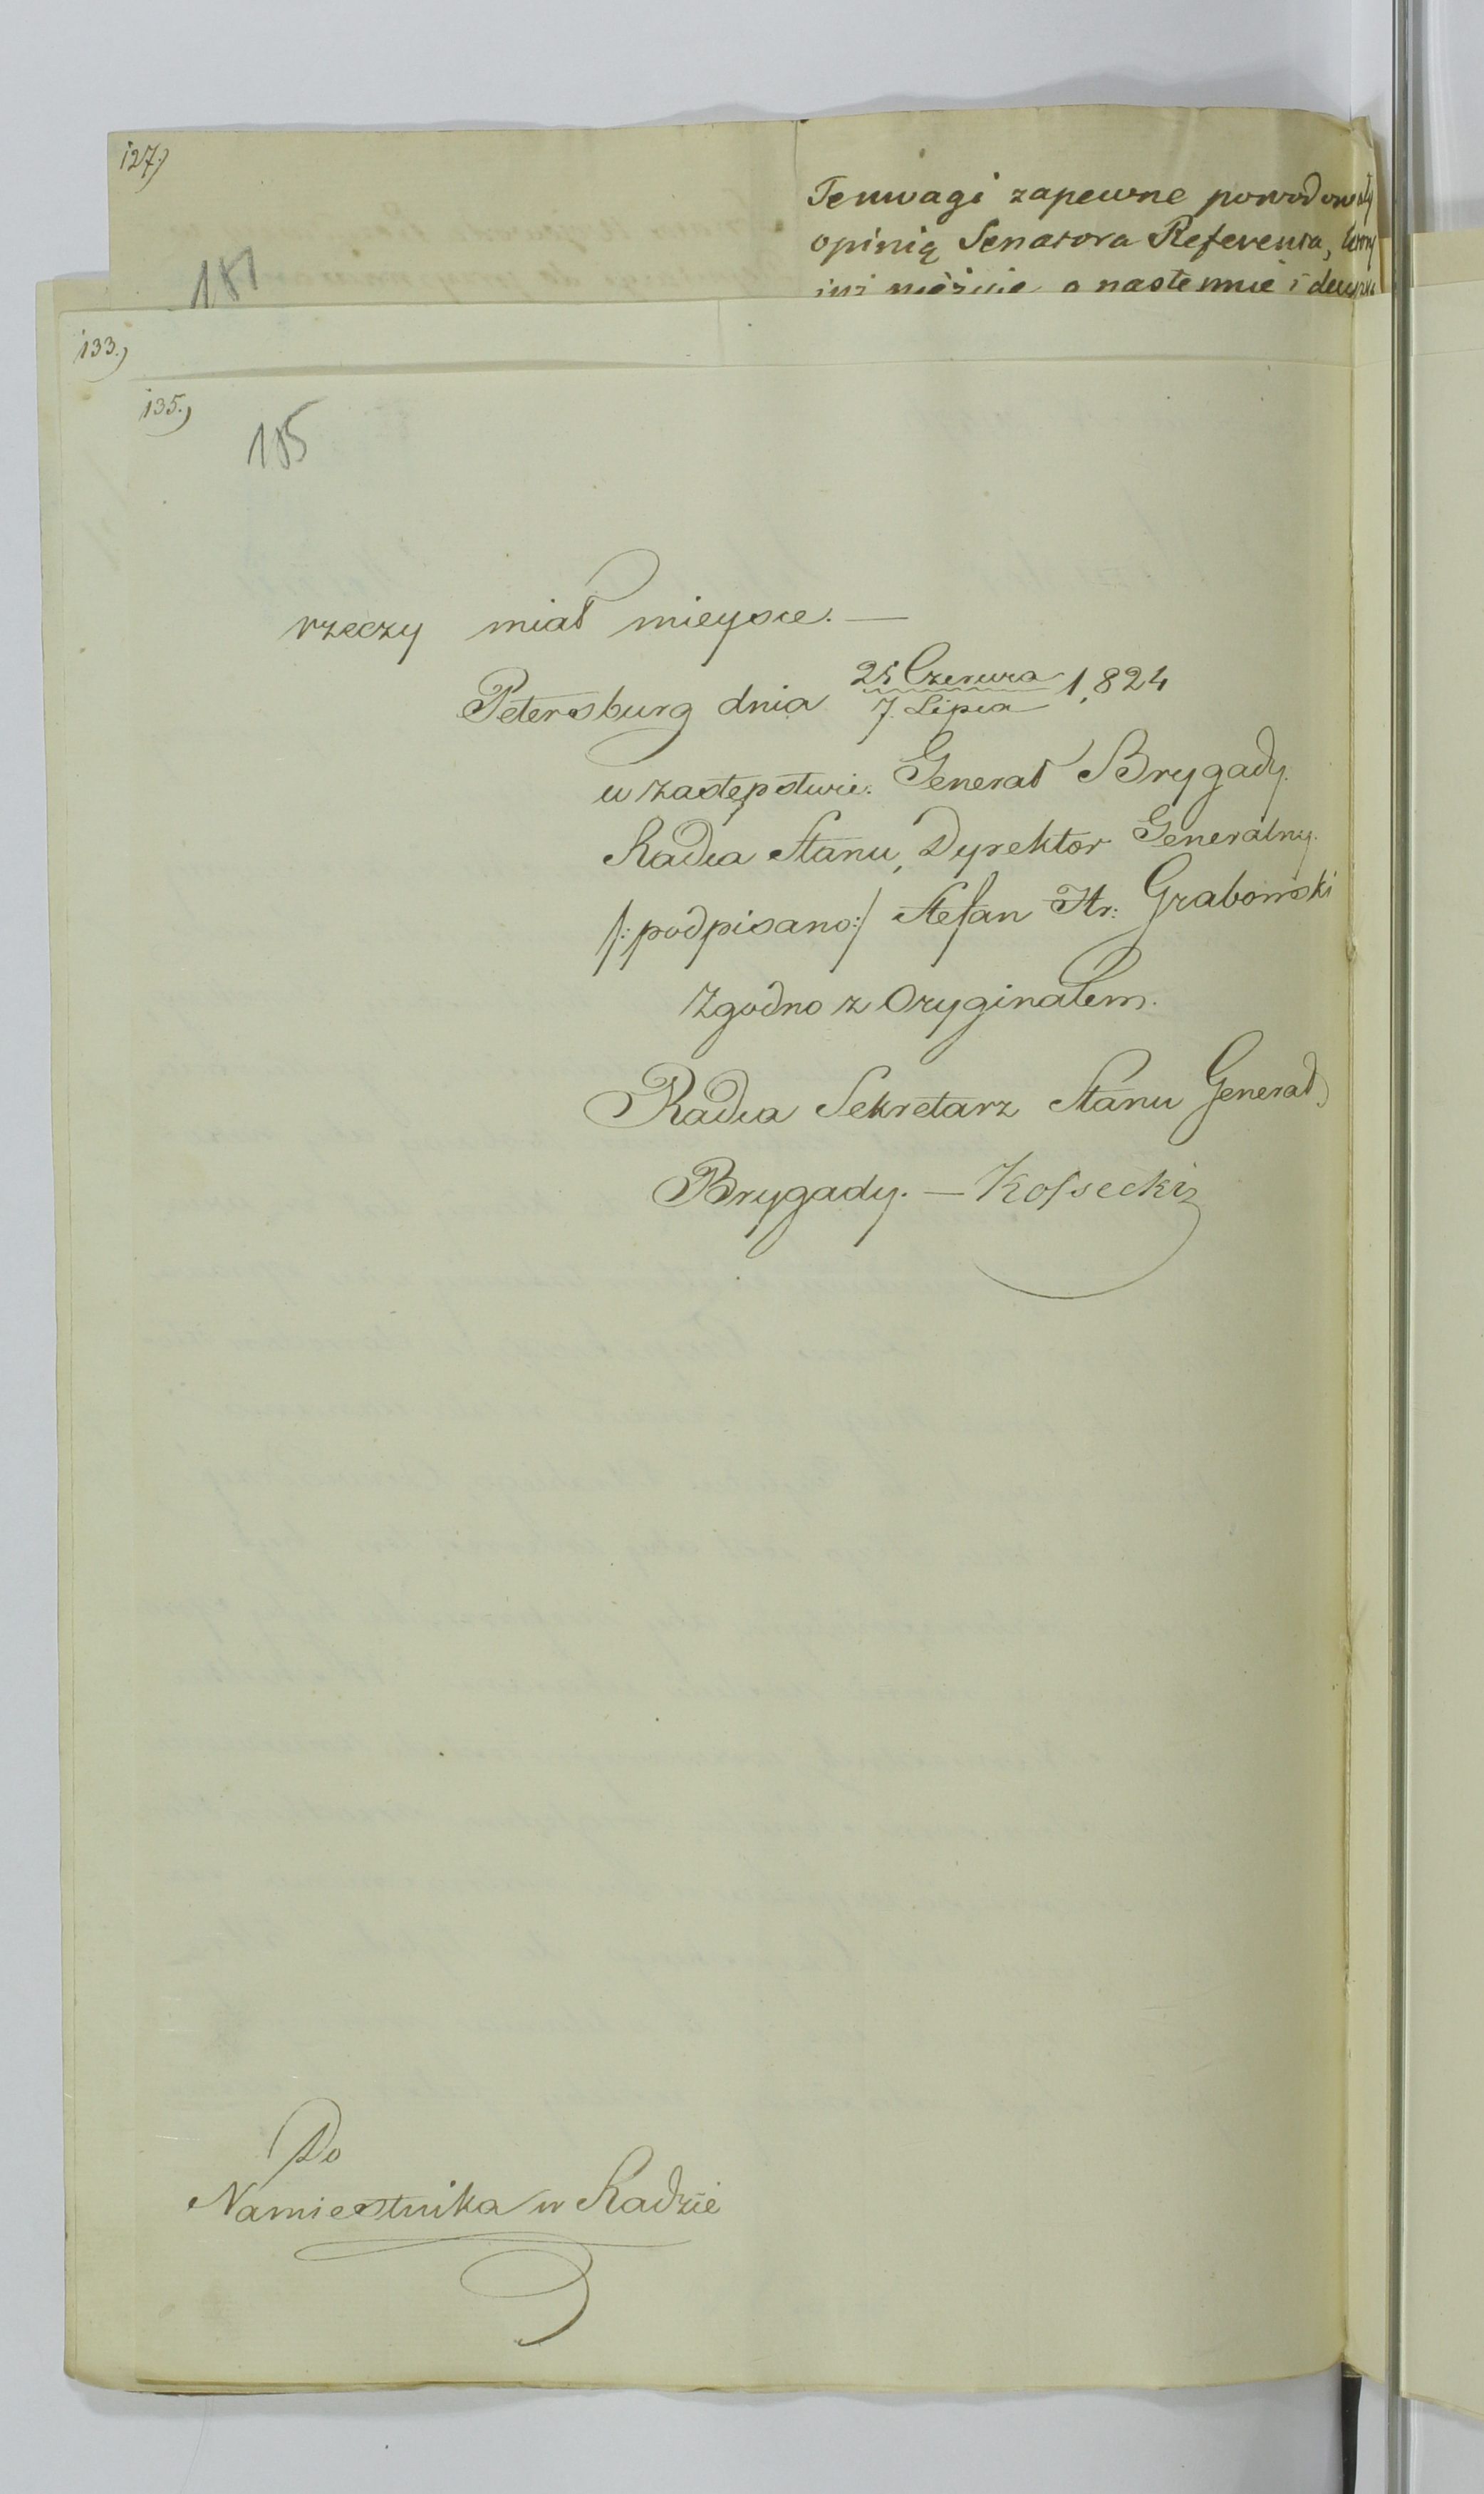 127.)
Te uwagi zapewne powodowały
opinią Senatora Referenta,
181
133.)
135.)
185
rzeczy miał mieysce. —
Petersburg dnia 25 Czerwca / 7. Lipca 1,824
w zastępstwie. Generał Brygady.
Radca Stanu, Dyrektor Generalny.
/:podpisano:/ Stefan Hr: Grabowski
Zgodno z Oryginałem.
Radca Sekretarz Stanu Generał
Brygady. — Kossecki
Do
Namiestnika w Radzie